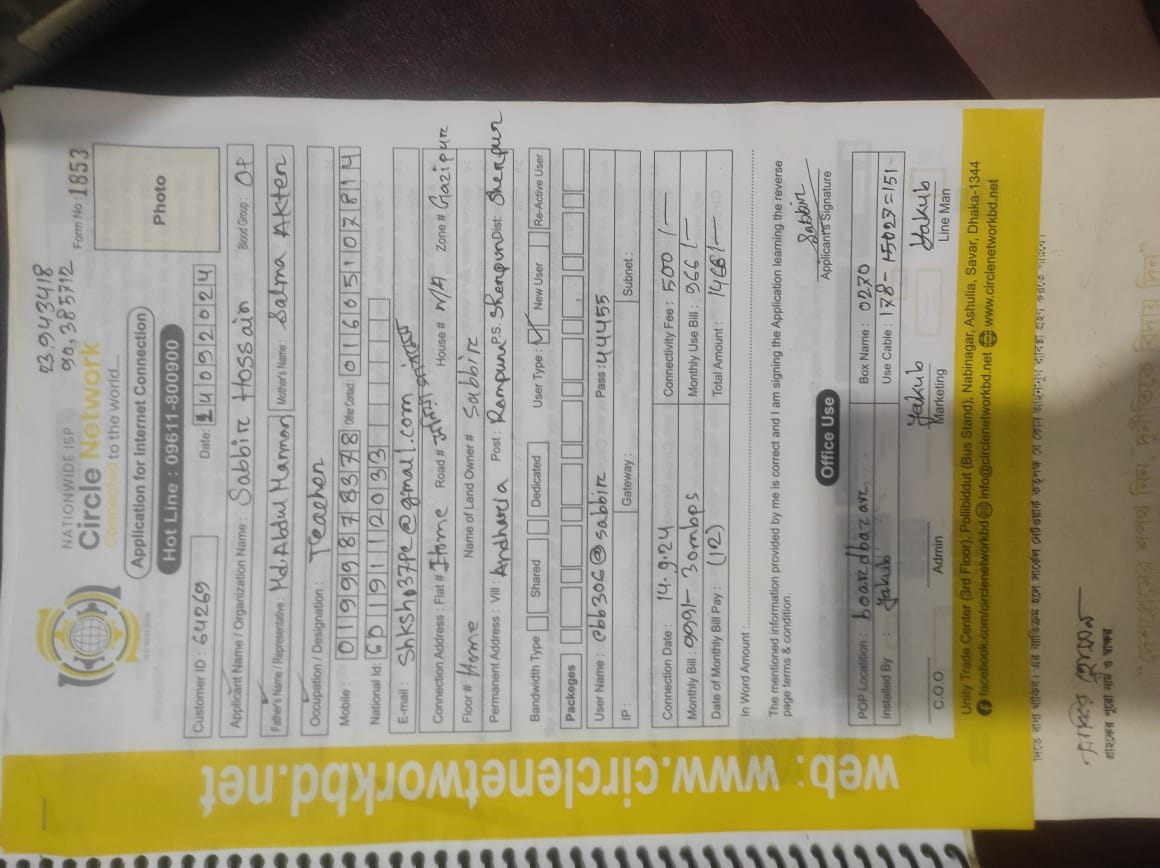 23.943418
90.385712
NATIONWIDE ISP
Circle Network
Connected to the world...
Form No : 1853
Application for Internet Connection
Hot Line : 09611-800900
Photo
Customer ID : 64269 Date: 14092024
Applicant Name / Organization Name : Sabbir Hossain Blood Group : O+
Father's Name / Representative : Md. Abdul Mannan Mother's Name : Salma Akter
Occupation / Designation : Teacher
Mobile : 01999878378 Other Contact 01605107814
National Id: 6019112033
E-mail : Shksho37pe@gmail.com
Connection Address : Flat # Home Road # House # N/A Zone # Gazipur
Floor # Home Name of Land Owner # Sabbir
Permanent Address : Vill : Andharia Post : Rampura P.S. Sherpur Dist: Sherpur
Bandwidth Type Shared Dedicated User Type : New User Re-Active User
Packeges
User Name : cbb306@sabbir Pass : 44455
IP : Gateway : Subnet :
Connection Date : 14.9.24 Connectivity Fee : 500/-
Monthly Bill : 999/- 30mbps Monthly Use Bill : 966/-
Date of Monthly Bill Pay : (12) Total Amount : 1466/-
In Word Amount :
The mentioned information provided by me is correct and I am signing the Application learning the reverse
page terms & condition.
Sabbir
Applicant's Signature
Office Use
POP Locatition : boardbazar Box Name : 0270
Installed By : Yakub Use Cable : 178-15027=151-
Yakub Yakub
C.O.O Admin Marketing Line Man
Unity Trade Center (3rd Floor), Pollibiddut (Bus Stand), Nabinagar, Ashulia, Savar, Dhaka-1344
facebook.com/circlenetworkbd info@circlenetworkbd.net www.circlenetworkbd.net
web: www.circlenetworkbd.net
সাব্বির হুসেন
গ্রাহকের পুরো নাম ও স্বাক্ষর